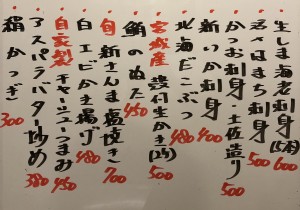 生しま海老刺身(5本) 600
活〆はまち刺身 500
かつお刺身・土佐造り 500
新いか刺身 400
北海だこぶつ 480
宮城産 殻付生かき(1ヶ) 500
鯛のぬた 450
旬 新さんま塩焼き 700
白エビかき揚げ 480
自家製 チャーシューつまみ 450
アスパラバター炒め 380
絹かつぎ 300